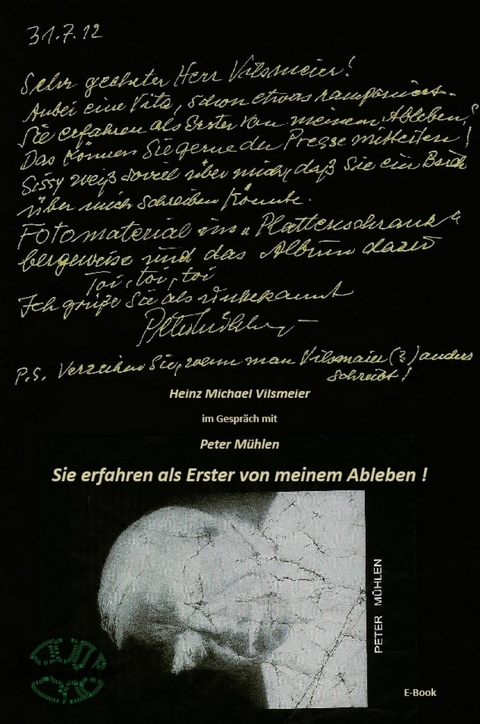 31.7.12
Sehr geehrter Herr Vilsmeier!
Anbei eine Vita, schon etwas ramponiert.
Sie erfahren als Erster von meinem Ableben!
Das können Sie gerne der Presse mitteilen!
Sissy weiß soviel über mich, daß Sie ein Buch
über mich schreiben könnte.
Fotomaterial im "Plattenschrank"
bergeweise und das Album dazu
Toi, toi, toi
Ich grüße Sie als unbekannt
P.S. Verzeihen Sie, wenn man Vilsmaier(?) anders
schreibt!
Heinz Michael Vilsmeier
im Gespräch mit
Peter Mühlen
Sie erfahren als Erster von meinem Ableben !
PETER MÜHLEN
E-Book